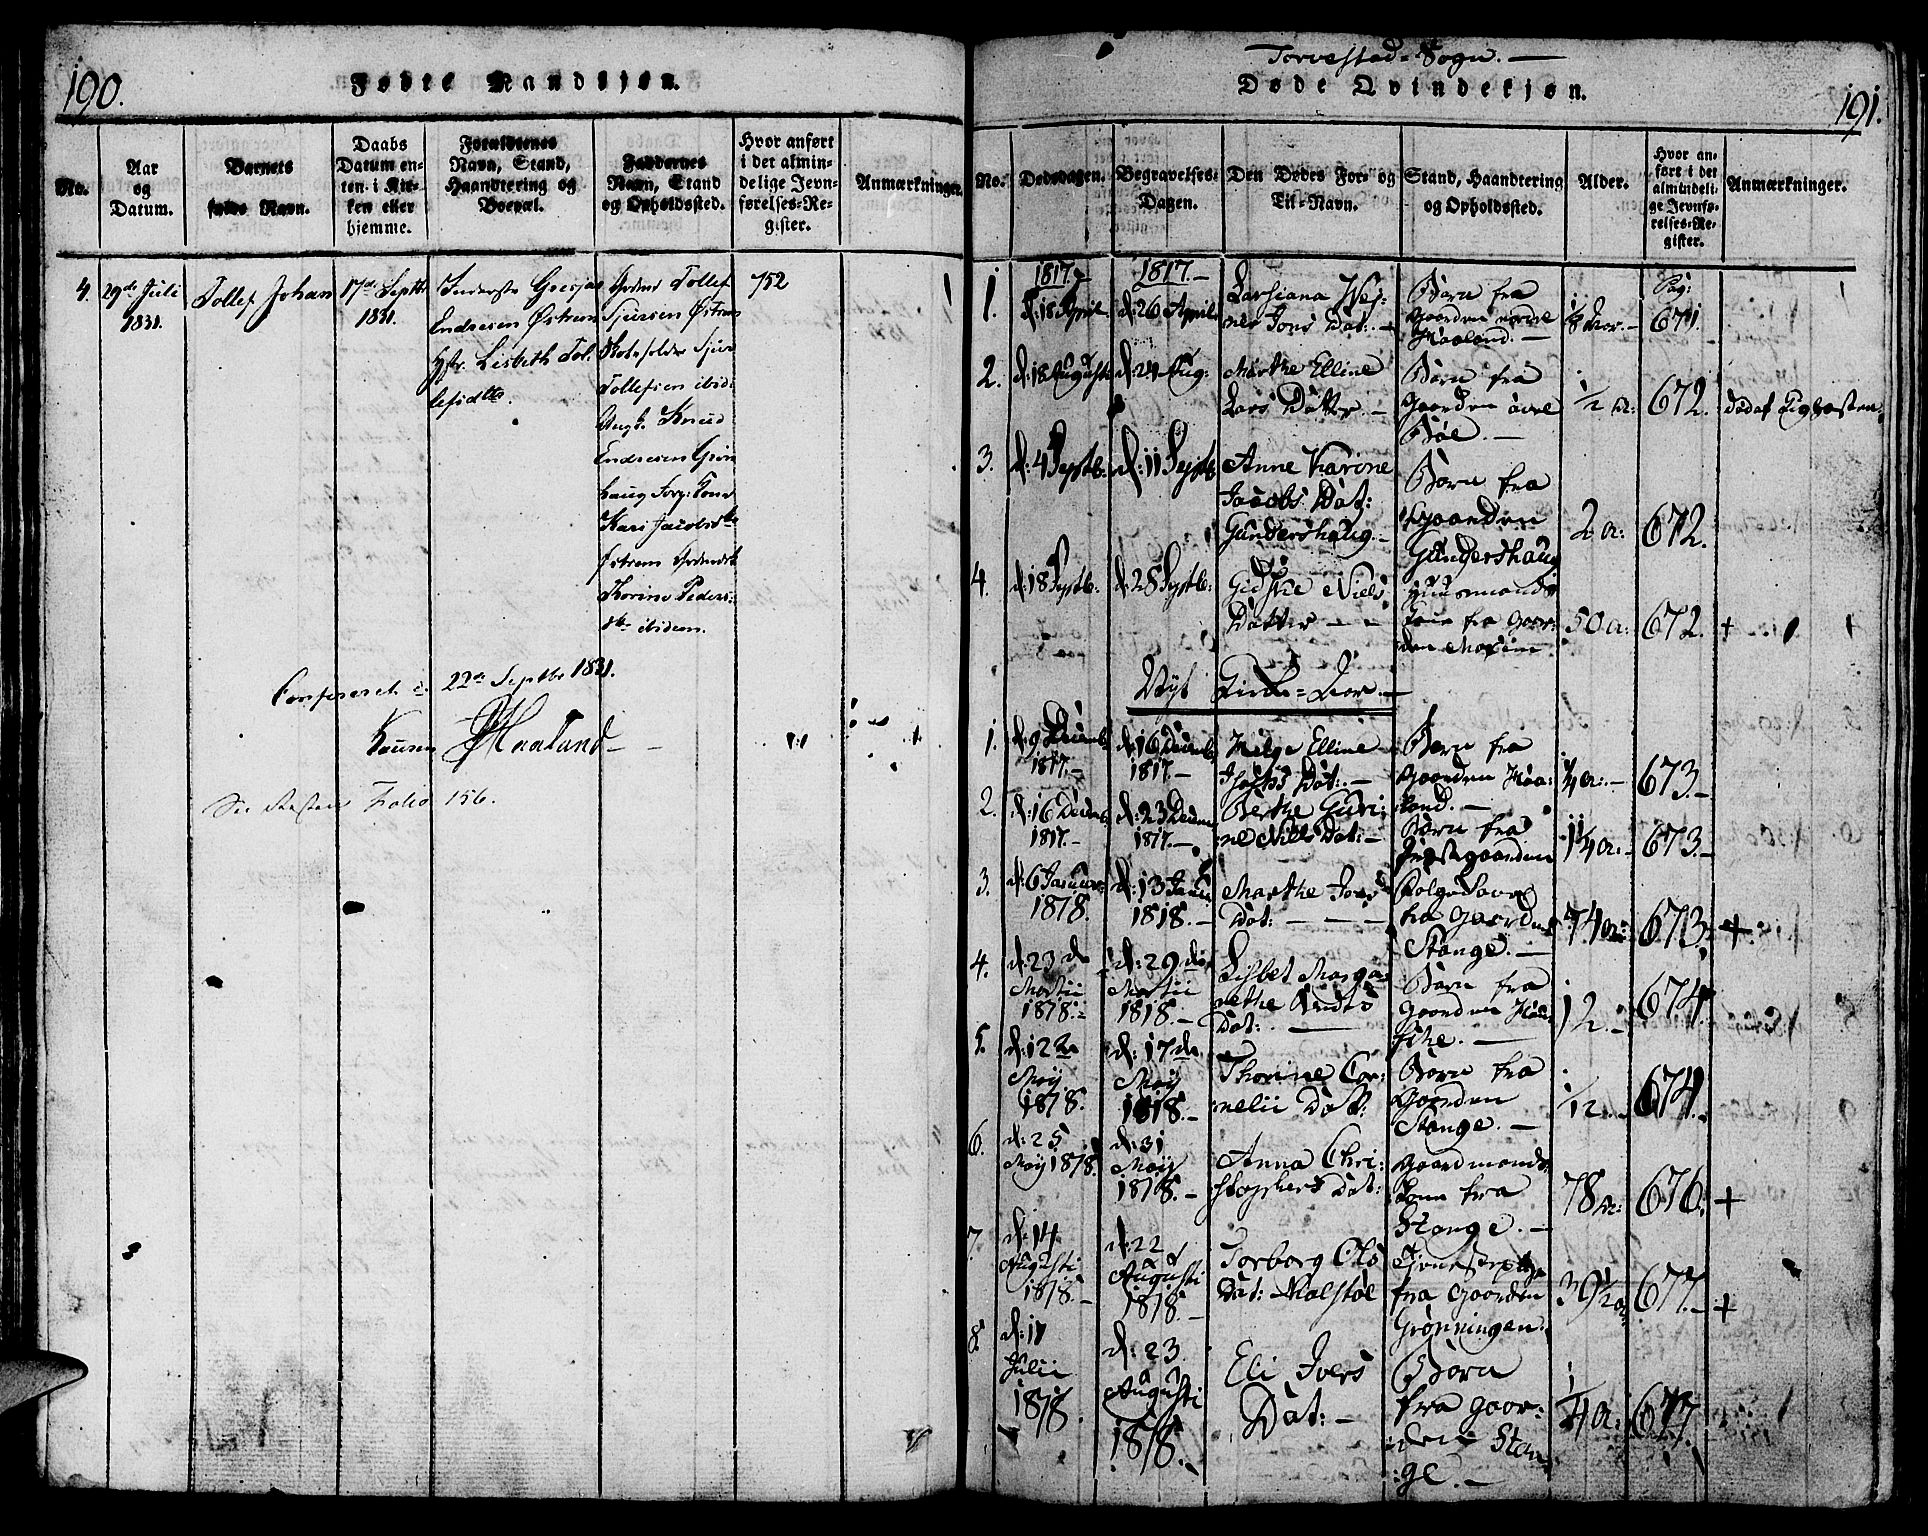 190.
Fødte Mandkjøn.
No.
Aar
og
Datum.
Barnets
fulde Navn.
Daabs
Datum en-
ten i Kir-
ken eller
hjemme.
Forældrenes
Navn, Stand,
Haandtering og
Boepæl.
Faddernes
Navn, Stand
og Opholdssted.
Hvor anført
i det almin-
delige Jevn-
førelses-Re-
gister.
Anmærkninger.
4.
29de Juli
1831.
Tollef Johan
17de Septbr
1831.
Endresen Østrem
Hstr. Lisbeth Tol-
lefsdttr.
Tollef
Sjursen Østrem
Sjur
Tollefsen ibid:
Ungk. Knud
Endresen Grin
haug
Kari Jacobsdtr
Østrem
Korine Peders:
dtr ibidem.
752
Confereret d. 22de Septbr 1831.
Haaland
Folio 156.
Torvestad-Sogn.
Døde Qvindekjøn.
191.
No.
Dødsdagen.
Begravelses-
Dagen.
Den Dødes For- og
Til-Navn.
Stand, Haandtering
og Opholdssted.
Alder.
Hvor an-
ført i det
almindeli-
ge Jevnfø-
relses-Re-
gister.
Anmærkninger.
1.
1817.
d: 18 April.
1817.
d: 26 April
Larsiana
Jons Dat:
Barn fra
Gaarden nordre
Haaland.
Pag:
671.
2.
d: 18 Augusti
d: 24 Aug:
Marthe Elline
Lars Datter
Barn fra
Gaarden
Bøe.
1/2 ar:
672.
3.
d: 4 Septb:
d: 11 Septb
Anne Karine
Jacobs Dat:
Gundershaug.
Barn fra
Gaarden
Gundershaug
2 a:
672.
4.
d: 18 Septb:
d: 28 Septb:
Giske Niels
Datter
Huusmands
Kone fra Gaar-
den
50 a:
672.
+
Nyt Kirke-Aar.
1.
d: 9 Decemb
1817.
d: 16 Decemb
1817.
Helge Elline
Dat:
Barn fra
Gaarden Haa:
land.
1/4 a:
673.
2.
d: 16 Decemb
1817.
d: 23 Decem
1817.
Berthe Guri:
ne Niels Dat:
Barn fra
1 1/4 a:
673.
3.
d: 6 Januar
1818.
d: 13 Janu
1818.
Marthe Ivers
Dat:
fra Gaarden
Stange.
74 a:
673.
+
4.
d: 23 de
Martii
1818.
d: 29 de
Martii
1818.
Lisbet Marga:
rethe Knuds
Dat:
Barn fra
Gaarden
12.
674.
5.
d: 12 de
Maij
1818.
d: 17 de
Maij
1818.
Thorine Cor:
nelii Dat:
Barn fra
Gaarden
Stange.
1/12.
674.
6.
d: 25
Maij 1818.
d: 31
Maij
1818.
Anna Chri:
stophers Dat:
Gaardmands
Kone fra
Stange.
78 ar:
676.
+
7.
d: 14
Augusti
1818.
d: 22
Augusti
1818.
Torborg Ols
Dat: Malstøl
Tjenestepige
fra Gaarden
Grønningen
39 1/2 a:
677.
+
8.
d: 11
Julii
1818.
d: 23
Augusti
1818.
Eli Ivers
Dat:
Barn
fra Gaar:
den Stan:
ge.
1/4 a:
677.